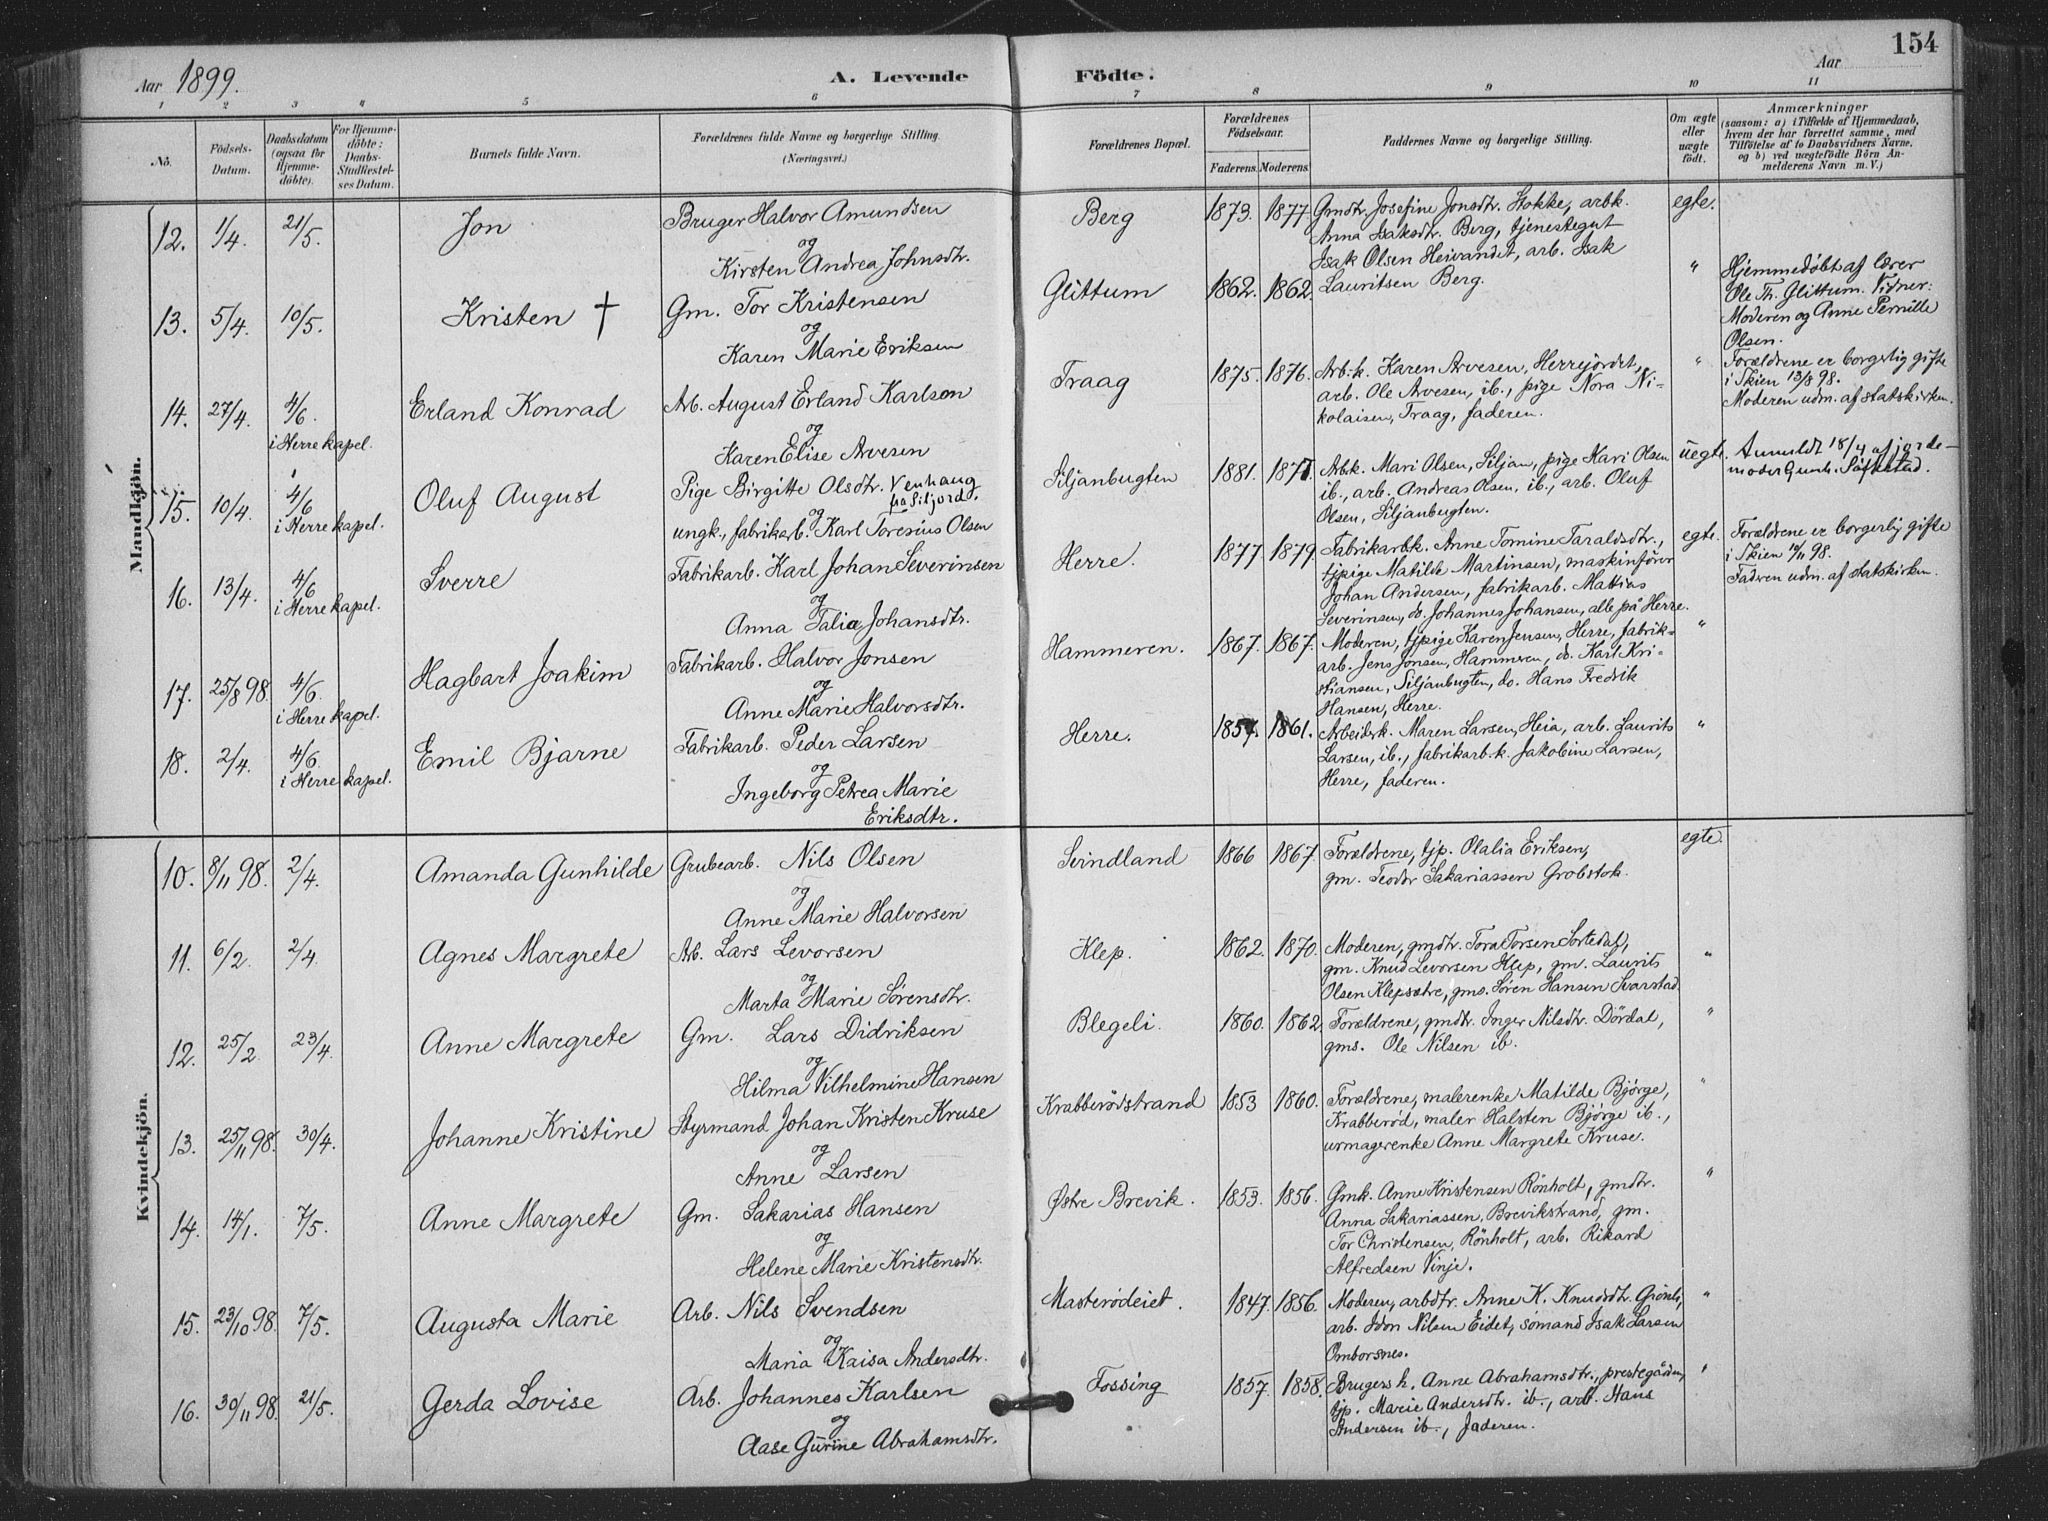 154
Aar 1899. A. Levende Födte. Aar
1 2 3 4 5 6 7 8 9 10 11
No. Födsels-Datum. Daabsdatum (ogsaa for Hjemmedöbte). For Hjemmedöbte: Daabs-Stadfæstelses Datum. Barnets fulde Navn. Forældrenes fulde Navne og borgerlige Stilling. (Næringsvei.) Forældrenes Bopæl. Forældrenes Födselsaar. Faderens. Moderens. Faddernes Navne og borgerlige Stilling. Om ægte eller uægte födt. Anmærkninger (saasom: a) i Tilfælde af Hjemmedaab, hvem der har forrettet samme, med Tilföielse af to Daabsvidners Navne, og b) ved uægtefödte Börn Anmelderens Navn m. V.)
Mandkjön.
12. 1/4 21/5. Jon Bruger Halvor Amundsen
og
Kirsten Andrea Johnsdtr.
Berg 1873. 1877. Gmdtr. Josefine Jonsdtr. Stokke, arbk.
Anna Isaksdtr. Berg, tjenestegut
Isak Olsen Heivandet, arb. Isak
Lauritsen Berg.
egte.
13. 5/4. 10/5. Kristen † Gm. Tor Kristensen
og
Karen Marie Eriksen
Glittum 1862. 1862.
"
Hjemmedøbt af lærer
Ole Th. Glittum. Vidner:
Moderen og Anne Pernille
Olsen.
14. 27/4. 4/6. i Herre kapel. Erland Konrad Arb. August Erland Karlson
og
Karen Elise Arvesen
Traag 1875. 1876. Arb.k. Karen Arvesen, Herrejordet,
arb. Ole Arvesen, ib., pige Nora Ni-
kolaisen, Traag, faderen.
"
Forældrene er borgerlig gifte
i Skien 13/8 98.
Moderen udm. af statskirken.
15. 10/4. 4/6 i Herre kapel. Oluf August Pige Birgitte Olsdtr. Venhaug
fra Siljord.
og
ungk., fabrikarb. Karl Toresius Olsen
Siljanbugten 1881. 1877. Arbk. Mari Olsen, Siljan, pige Kari Olsen
ib., arb. Andreas Olsen, ib., arb. Oluf
Olsen, Siljanbugten.
uegte.
Anmeldt 18/4 af jorde-
moder Gunh.
16. 13/4. 4/6 i Herre kapel. Sverre Fabrikarb. Karl Johan Severinsen
og
Anna Talie Johansdtr.
Herre. 1877. 1879. Fabrikarbk. Anne Tomine Taraldsdtr.,
tjpige Matilde Martinsen, maskinfører
Johan Andersen, fabrikarb. Mathias
Severinsen, do. Johannes Johansen, alle på Herre.
egte.
Forældrene er borgerlig gifte
i Skien 98.
Faderen udm. af statskirken.
17. 25/8 98. 4/6. i Herre kapel. Hagbart Joakim Fabrikarb. Halvor Jonsen
og
Anne Marie Halvorsdtr.
Hammeren. 1867. 1867. Moderen, tjpige Karen Jensen, Herre, fabrik-
arb. Jens Jonsen, Hammeren, do. Karl Kri-
stiansen, Siljanbugten, do. Hans Fredrik
Hansen, Herre.
"
18. 2/4. 4/6. i Herre kapel. Emil Bjarne Fabrikarb. Peder Larsen
og
Ingeborg Petrea Marie
Eriksdtr.
Herre. 1857. 1861. Arbeiderk. Maren Larsen, Heia, arb. Laurits
Larsen, ib., fabrikarb.k. Jakobine Larsen,
Herre, faderen.
"
Kvindekjön.
10. 8/11 98. 2/4. Amanda Gunhilde Grubearb. Nils Olsen
og
Anne Marie Halvorsen
Svindland 1866 1867. Forældrene, tjp. Olalia Eriksen,
gm. Teodor Sakariassen Grobstok.
egte.
11. 6/2. 2/4. Agnes Margrete Arb. Lars Levorsen
og
Marta Marie Sørensdtr.
Klep. 1862. 1870. Moderen, gmdtr. Tora Torsen Sortedal,
gm. Knud Levorsen Klep, gm. Laurits
Olsen Klepsætre, gms. Søren Hansen Svarstad.
"
12. 25/2. 23/4. Anne Margrete Gm. Lars Didriksen
og
Hilma Vilhelmine Hansen
Blegeli. 1860. 1862. Forældrene, gmdtr. Inger Nilsdtr. Dördal,
gms. Ole Nilsen ib.
"
13. 25/11 98. 30/4. Johanne Kristine Styrmand Johan Kristen Kruse
og
Anne Larsen
Krabberödstrand 1853 1860. Forældrene, malerenke Matilde Bjørge,
Krabberød, maler Halsten Bjørge ib.,
urmagerenke Anne Margrete Kruse.
"
14. 14/1. 7/5. Anne Margrete Gm. Sakarias Hansen
og
Helene Marie Kristensdtr.
Østre Brevik. 1853. 1856. Gmk. Anne Kristensen Rönholt, gmdtr.
Anna Sakariassen, Brevikstrand, gm.
Tor Christensen, Rönholt, arb. Rikard
Alfredsen Vinje.
"
15. 23/10 98. 7/5. Augusta Marie Arb. Nils Svendsen
og
Maria Kaisa Andersdtr.
Masterødeiet. 1847. 1856. Moderen, arbdtr. Anne K. Knudsdtr.
arb. Nilsen Eidet, sømand Isak Larsen
Omborsnes.
"
16. 30/11 98. 21/5. Gerda Lovise Arb. Johannes Karlsen
og
Aase Gurine Abrahamsdtr.
Fossing 1857. 1858. Brugers k. Anne Abrahamsdtr., prestegården,
tjp. Marie Andersdtr. ib., arb. Hans
Andersen ib., faderen.
"